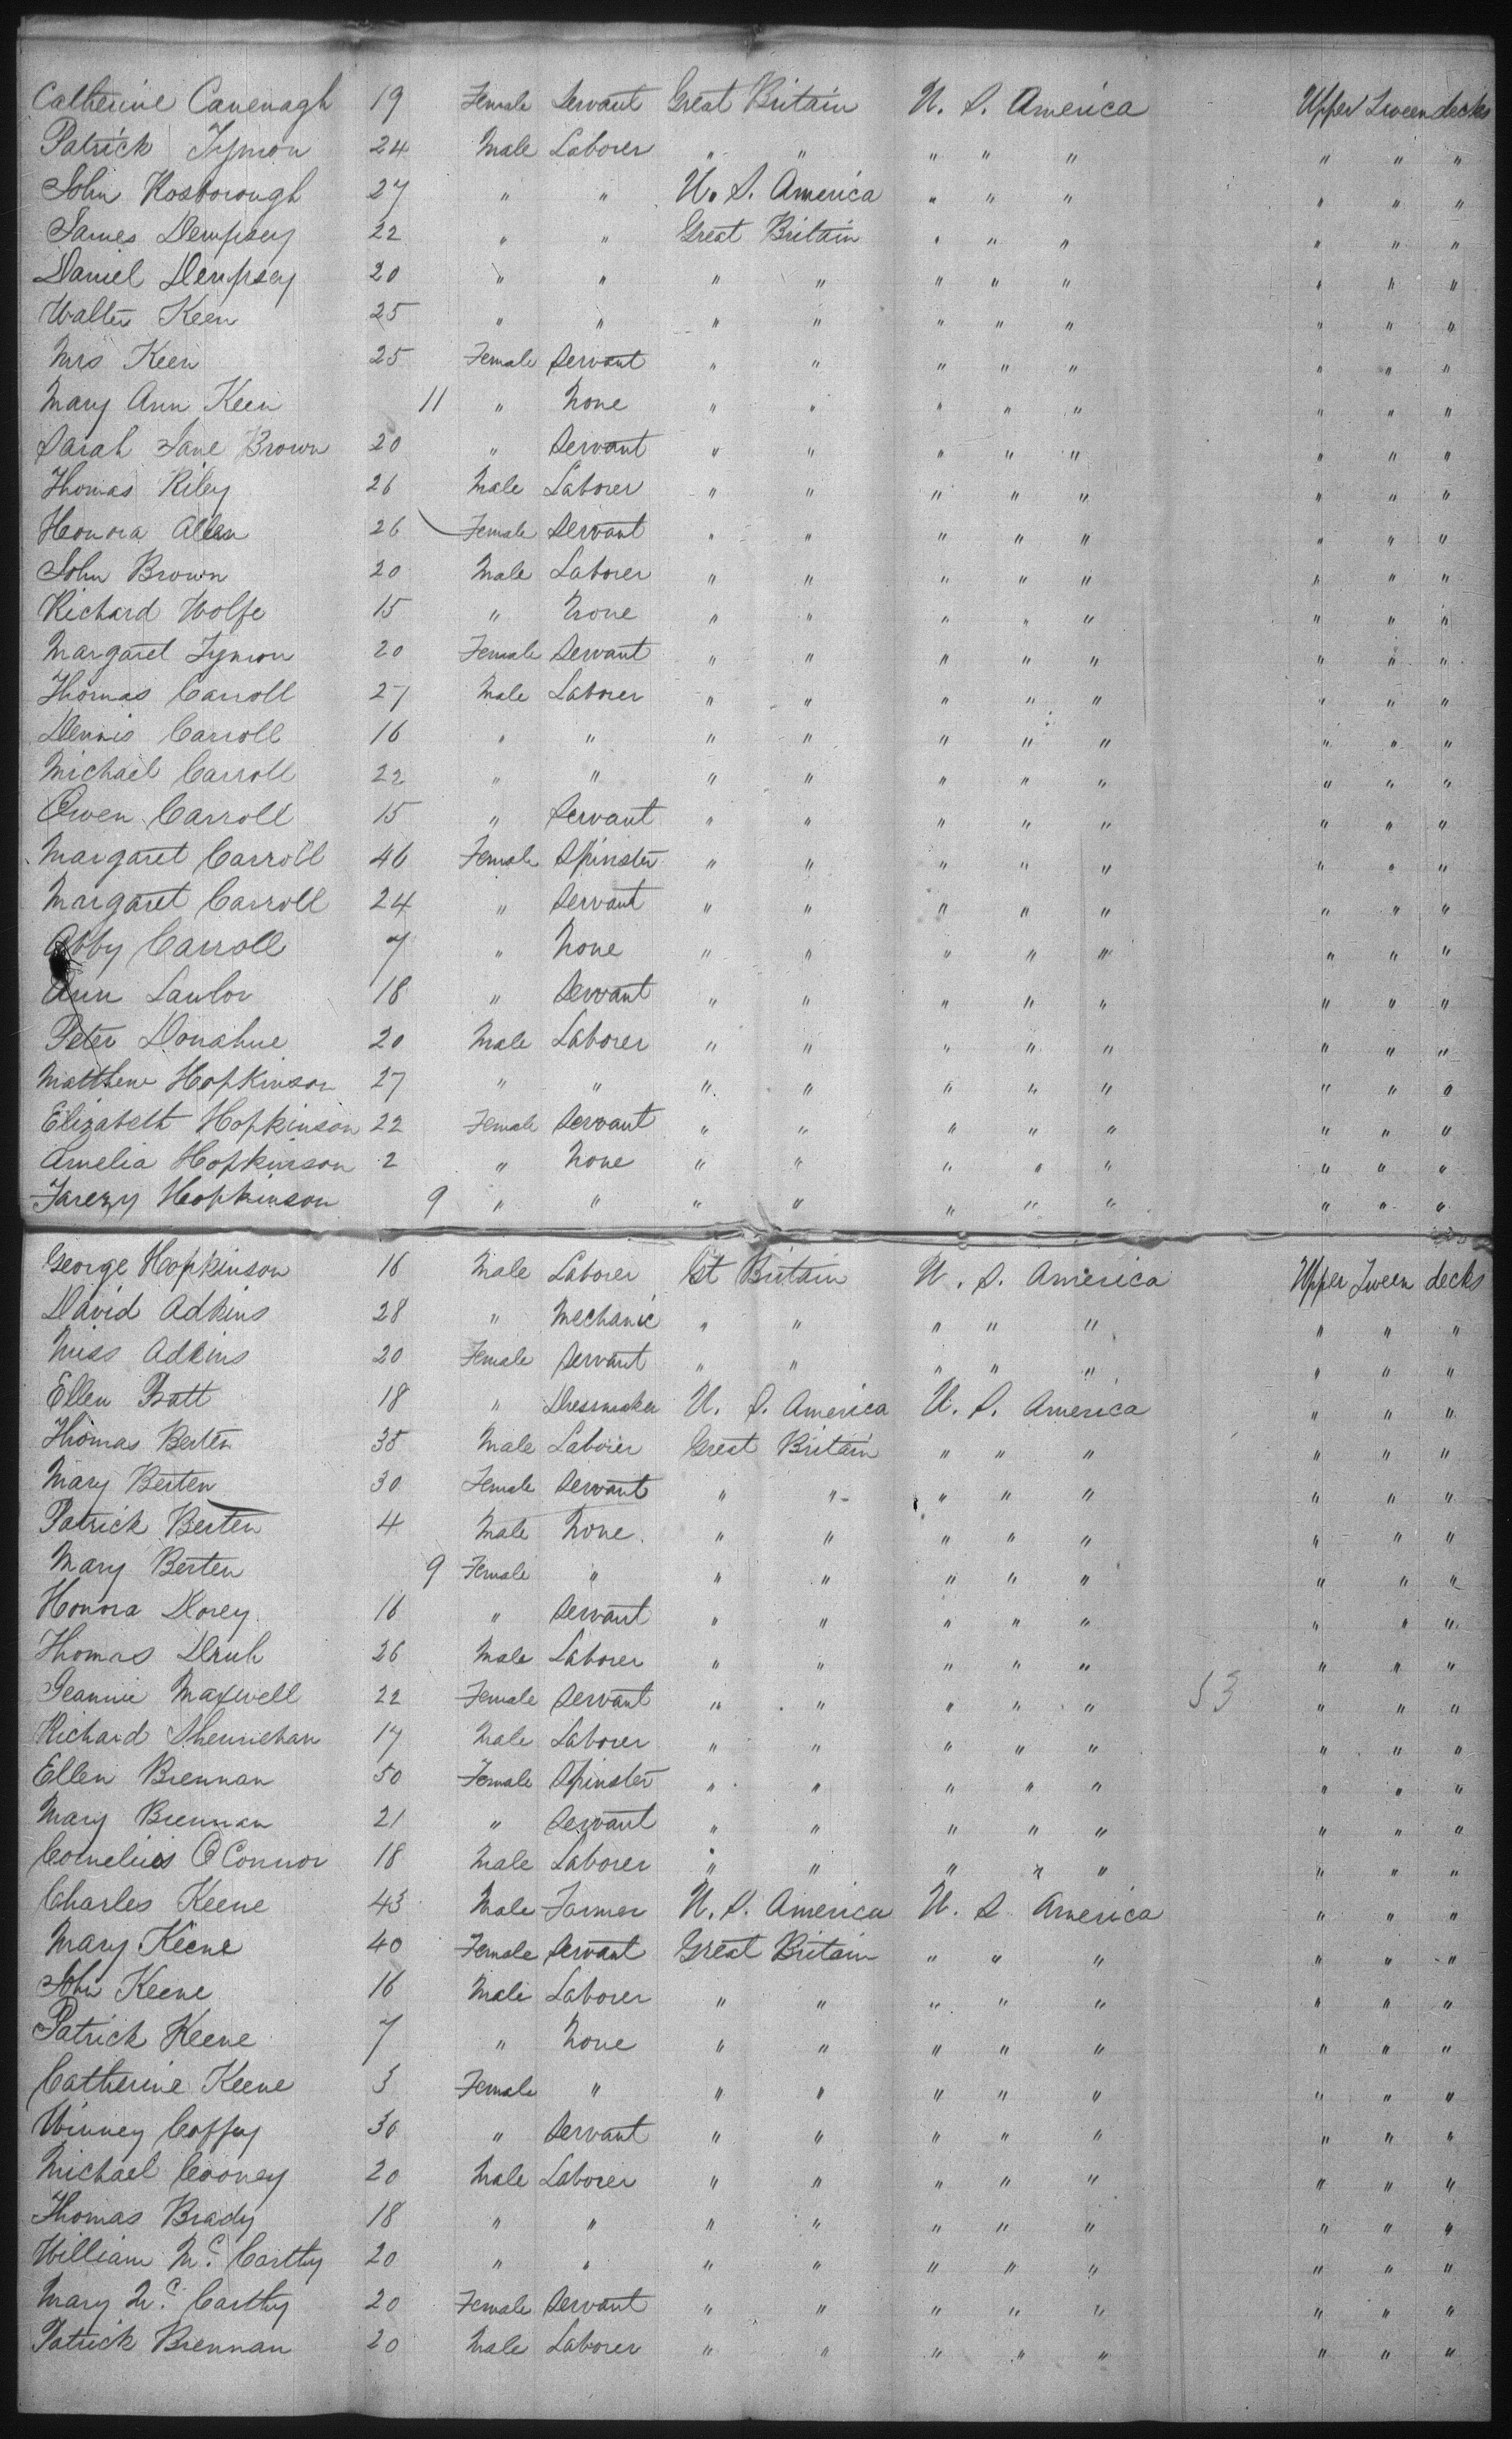 Catherine Cavenagh 19 Female Servant Great Britain U. S. America Upper Tween decks
Patrick Tymon 24 Male Laborer " " " " " " " "
John Rosborough 27 " " U. S. America " " " " " "
James Dempsey 22 " " Great Britain " " " " " "
Daniel Dempsey 20 " " " " " " " " " "
Walter Keen 25 " " " " " " " " " "
Mrs Keen 25 Female Servant " " " " " " " "
Mary Ann Keen 11 " None " " " " " " " "
Sarah Jane Brown 20 " Servant " " " " " " " "
Thomas Riley 26 Male Laborer " " " " " " " "
Honora Allen 26 Female Servant " " " " " " " "
John Brown 20 Male Laborer " " " " " " " "
Richard Wolfe 15 " None " " " " " " " "
Margaret Tymon 20 Female Servant " " " " " " " "
Thomas Carroll 27 Male Laborer " " " " " " " "
Dennis Carroll 16 " " " " " " " " " "
Michael Carroll 22 " " " " " " " " " "
Owen Carroll 15 " Servant " " " " " " " "
Margaret Carroll 46 Female Spinster " " " " " " " "
Margaret Carroll 24 " Servant " " " " " " " "
Abby Carroll 7 " None " " " " " " " "
Ann Lawlor 18 " Servant " " " " " " " "
Peter Donahue 20 Male Laborer " " " " " " " "
Matthew Hopkinson 27 " " " " " " " " " "
Elizabeth Hopkinson 22 Female Servant " " " " " " " "
Amelia Hopkinson 2 " None " " " " " " " "
Hopkinson 9 " " " " " " " " " "
George Hopkinson 16 Male Laborer Gt Britain U. S. America Upper Tween decks
David Adkins 28 " Mechanic " " " " " " " "
Miss Adkins 20 Female Servant " " " " " " " "
Ellen Batt 18 " Dressmaker U. S. America U. S. America " " "
Thomas Berten 35 Male Laborer Great Britain " " " " " "
Mary Berten 30 Female Servant " " " " " " " "
Patrick Berten 4 Male None " " " " " " " "
Mary Berten 9 Female " " " " " " " " "
Honora Dorey 16 " Servant " " " " " " " "
Thomas 26 Male Laborer " " " " " " " "
Jeannie Maxwell 22 Female Servant " " " " " 53 " " "
Richard Shenriehan 17 Male Laborer " " " " " " " "
Ellen Brennan 50 Female Spinster " " " " " " " "
Mary Brennan 21 " Servant " " " " " " " "
Cornelius O'Connor 18 Male Laborer " " " " " " " "
Charles Keene 43 Male Farmer U. S. America U. S America " " "
Mary Keene 40 Female Servant Great Britain " " " " " "
John Keene 16 Male Laborer " " " " " " " "
Patrick Keene 7 " None " " " " " " " "
Catherine Keene 3 Female " " " " " " " " "
Winney Coffey 30 " Servant " " " " " " " "
Michael Cooney 20 Male Laborer " " " " " " " "
Thomas Brady 18 " " " " " " " " " "
William Mc. Carthy 20 " " " " " " " " " "
Mary Mc. Carthy 20 Female Servant " " " " " " " "
Patrick Brennan 20 Male Laborer " " " " " " " "